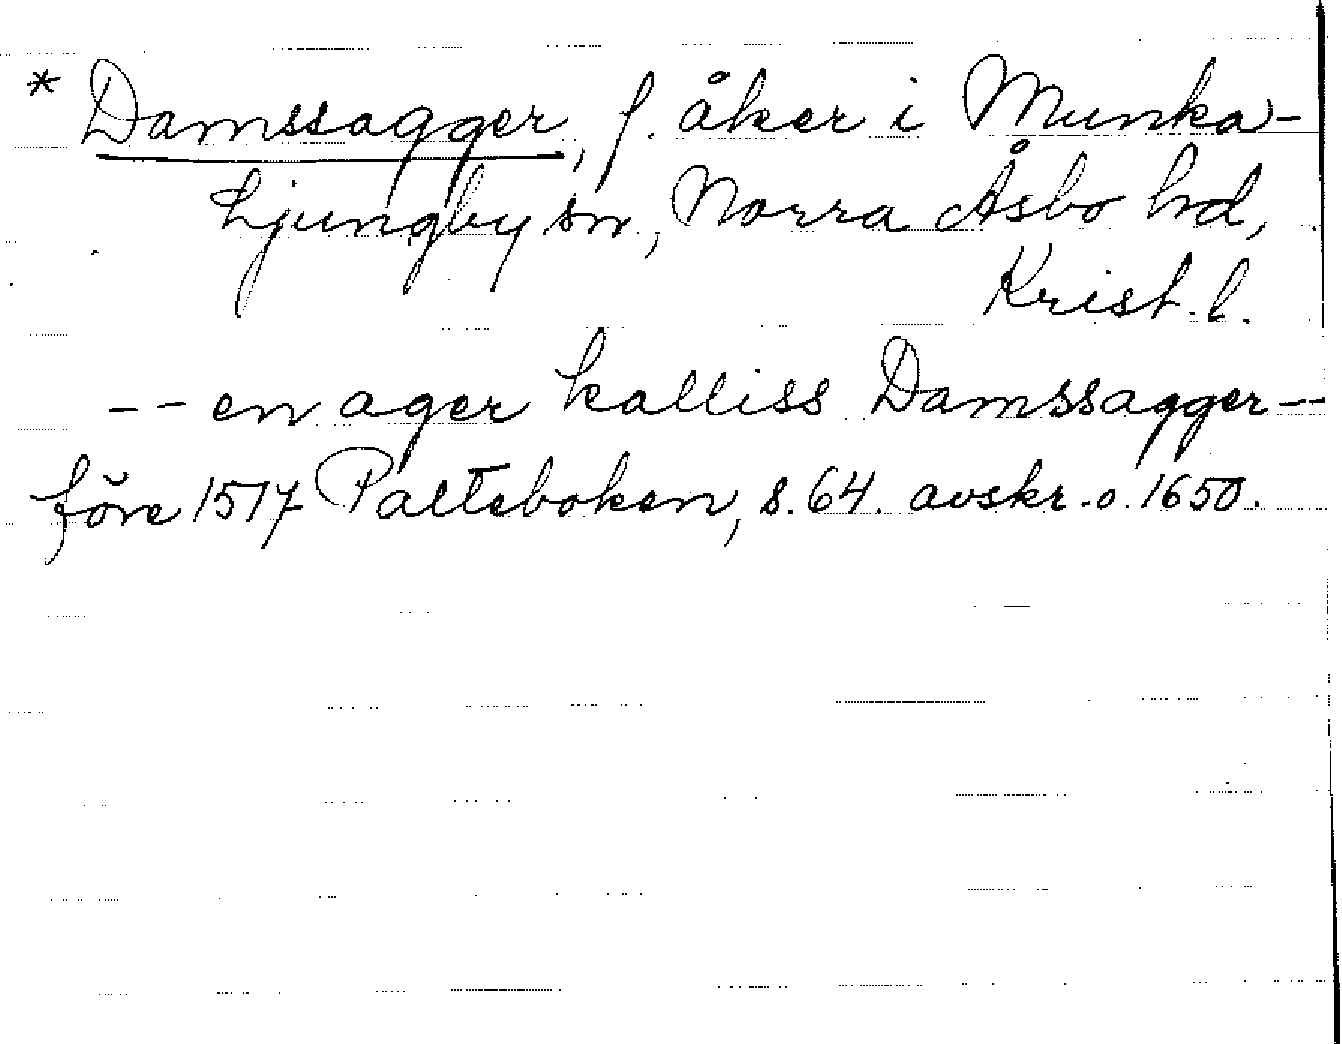 * Damssagger, f. åker i Munka-
Ljungby sn, Norra Åsbo hd,
Krist. l.
-- en ager kalliss Damssagger --
före 1517 Palteboken, s. 64. avskr. o. 1650.